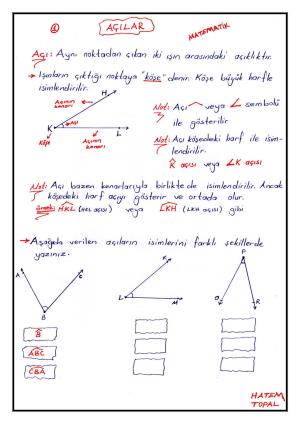 1 AÇILAR MATEMATİK
Açı: Aynı noktadan çıkan iki ışın arasındaki açıklıktır.
→ Işınların çıktığı noktaya "köşe" denir. Köşe büyük harfle
isimlendirilir.
H
Açının
kenarı
K Açı L
Köşe
Açının
kenarı
Not: Açı ^ veya ∠ sembolü
ile gösterilir
Not: Açı köşedeki harf ile isim-
lendirilir.
K̂ açısı veya ∠K açısı
Not: Açı bazen kenarlarıyla birlikte de isimlendirilir. Ancak
köşedeki harf açıyı gösterir ve ortada olur.
Örnek: HKL (HKL açısı) veya LKH (LKH açısı) gibi
→ Aşağıda verilen açıların isimlerini farklı şekillerde
yazınız.
A C
B
K
L M
P
O R
B̂
ABC
CBA
HATEM
TOPAL